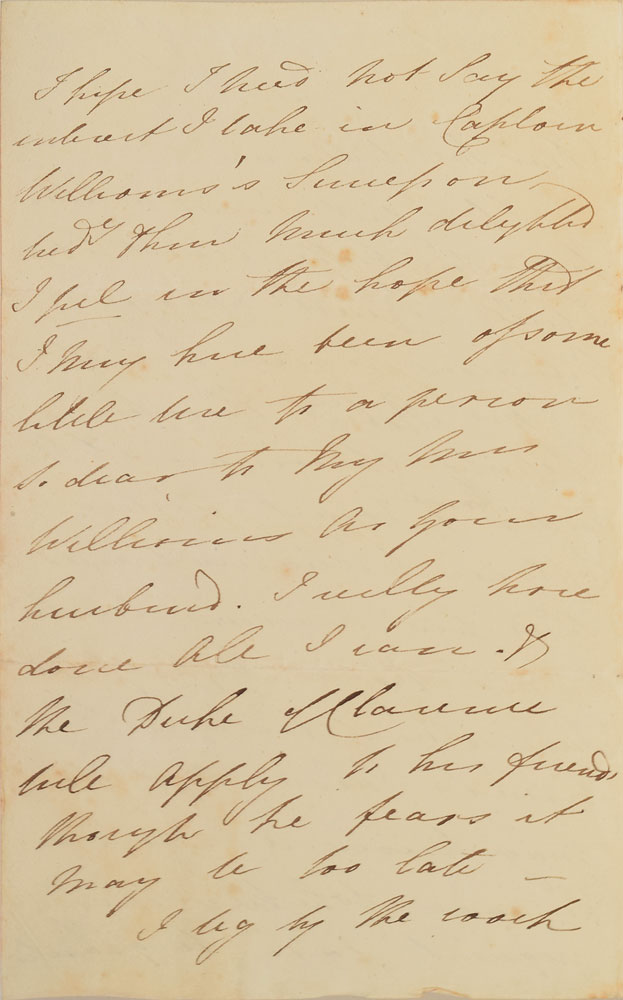 I hope I need not say the
interest I take in Captain
Williams's Succession
how much delighted
I feel in the hope that
I may have been of some
little use to a person
so dear to my Mrs
Williams as your
husband. I really have
done all I can - &
the Duke of Clarence
will apply to his friends
though he fears it
may be too late —
I beg by the coach